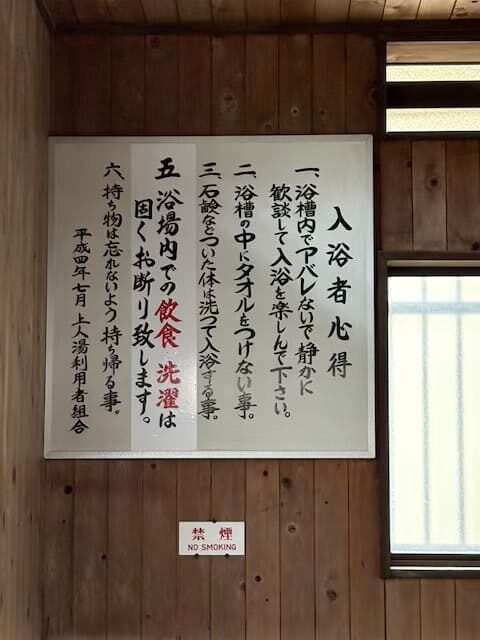 入浴者心得
一、浴槽内でアバレないで静かに
歓談して入浴を楽しんで下さい。
二、浴槽の中にタオルをつけない事。
三、石鹸などついた体は洗つて入浴する事。
五 浴場内での飲食 洗濯は
固くお断り致します。
六、持ち物は忘れないよう 持ち帰る事。
平成四年七月 上人湯利用者組合
禁煙
NO SMOKING